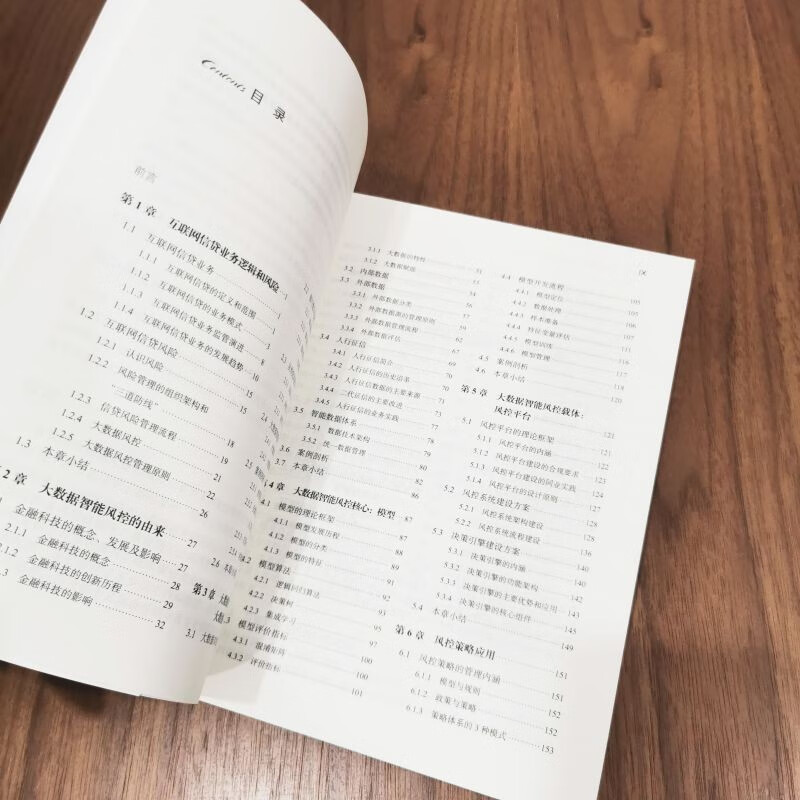 Contents 目录
前言
第1章 互联网信贷业务逻辑和风险 1
1.1 互联网信贷业务 1
1.1.1 互联网信贷的定义和范围 1
1.1.2 互联网信贷的业务模式
1.1.3 互联网信贷业务监管演进 8
1.1.4 互联网信贷业务的发展趋势 10
1.2 互联网信贷风险 15
1.2.1 认识风险 15
1.2.2 风险管理的组织架构和
“三道防线” 18
1.2.3 信贷风险管理流程 19
1.2.4 大数据风控 21
1.2.5 大数据风控管理原则 22
1.3 本章小结 26
2章 大数据智能风控的由来 27
金融科技的概念、发展及影响 27
2.1.1 金融科技的概念 28
2.1.2 金融科技的创新历程 29
金融科技的影响 32
第3章
3.1
3.1.1 大数据的特性 51
3.1.2 大数据赋能
3.2 内部数据 54
3.3 外部数据 56
3.3.1 外部数据分类 57
3.3.2 外部数据源的管理原则 59
3.3.3 外部数据管理流程 62
3.3.4 外部数据评估 67
3.4 人行征信
3.4.1 人行征信简介
3.4.2 人行征信的历史沿革
3.4.3 人行征信数据的主要来源
3.4.4 二代征信的主要改进
3.4.5 人行征信的业务实践
3.5 智能数据体系 78
3.5.1 数据技术架构 79
3.5.2 统一数据管理 80
3.6 案例剖析 82
3.7 本章小结 86
4章 大数据智能风控核心：模型 87
4.1 模型的理论框架 87
4.1.1 模型发展历程 87
4.1.2 模型的分类 89
4.1.3 模型的特征 91
4.2 模型算法 92
4.2.1 逻辑回归算法 93
4.2.2 决策树 95
4.2.3 集成学习 97
4.3 模型评价指标 100
4.3.1 混淆矩阵 100
4.3.2 评价指标 101
IX
4.4 模型开发流程 105
4.4.1 模型定位 105
4.4.2 数据处理 106
4.4.3 样本准备 107
4.4.4 特征变量评估 111
4.4.5 模型训练 116
4.4.6 模型管理 117
4.5 案例剖析 118
4.6 本章小结 120
第5章 大数据智能风控载体：
风控平台 121
5.1 风控平台的理论框架
5.1.1 风控平台的内涵
5.1.2 风控平台建设的合规要求
5.1.3 风控平台建设的同业实践
5.1.4 风控平台的设计原则
5.2 风控系统建设方案
5.2.1 风控系统架构建设
5.2.2 风控系统流程建设
5.3 决策引擎建设方案
5.3.1 决策引擎的内涵
5.3.2 决策引擎的功能架构
5.3.3 决策引擎的主要优势和应用 143
5.3.4 决策引擎的核心组件 145
5.4 本章小结 149
第6章 风控策略应用 151
6.1 风控策略的管理内涵 151
6.1.1 模型与规则 152
6.1.2 政策与策略 152
6.1.3 策略体系的3种模式 153